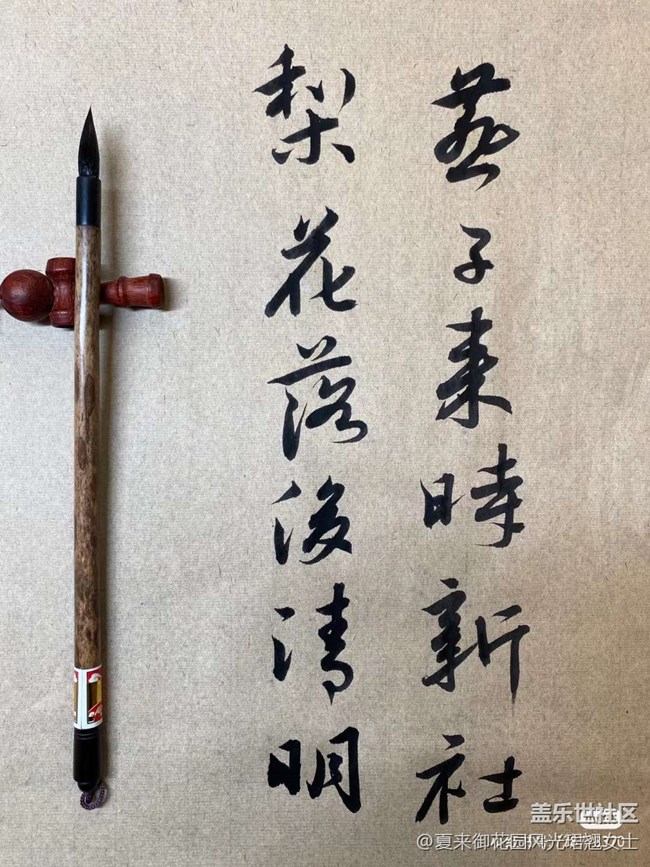 燕子来時新社
梨花落後清明
盖乐世社区
@夏来御花园风光珺翘女士